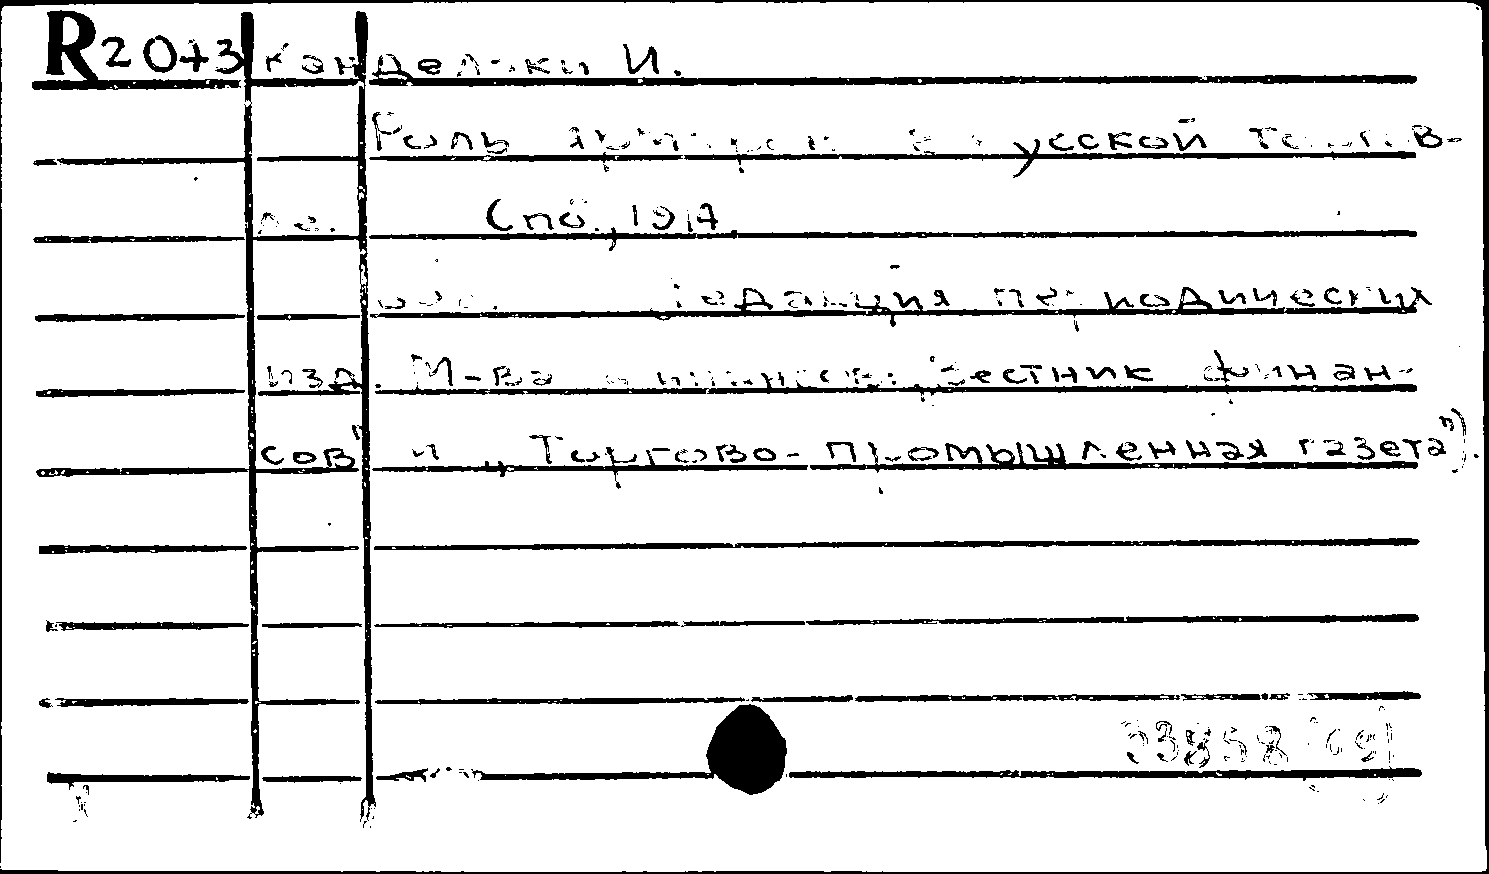 R 2073 Канделаки И.
Роль ярмарок в русской торгов-
ле. Спб., 1914.
Редакция периодических
изд. М-ва финансов: „Вестник финан-
сов" и „Торгово-промышленная газета").
33858